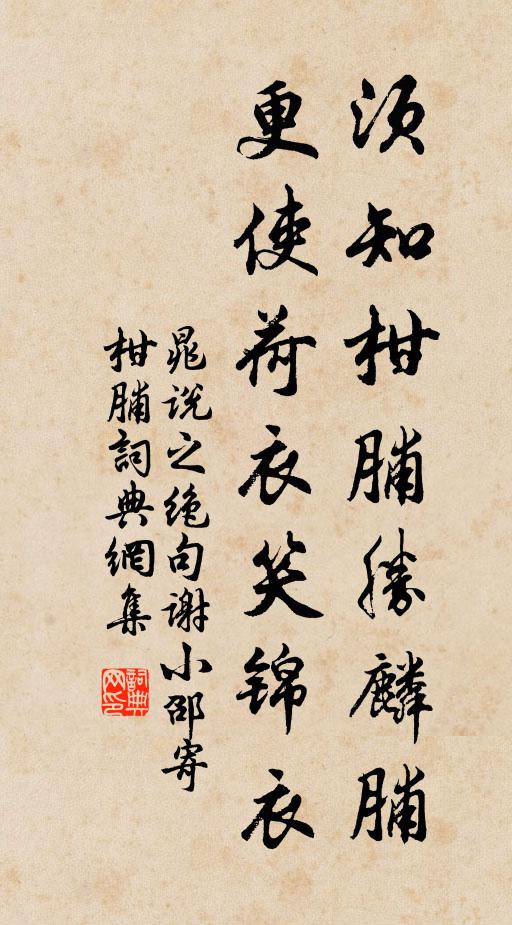 須知柑脯勝麟脯
更使荷衣笑錦衣
晁說之絶句謝小邵寄
柑脯詞典網集
詞典網印